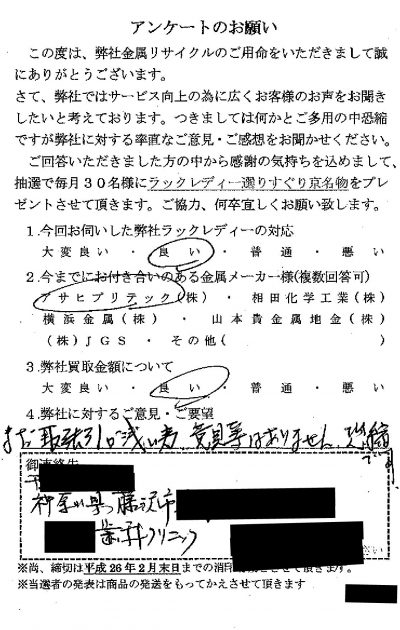 アンケートのお願い
この度は、弊社金属リサイクルのご用命をいただきまして誠
にありがとうございます。
さて、弊社ではサービス向上の為に広くお客様のお声をお聞き
したいと考えております。つきましては何かとご多用の中恐縮
ですが弊社に対する率直なご意見・ご感想をお聞かせください。
ご回答いただきました方の中から感謝の気持ちを込めまして、
抽選で毎月30名様にラックレディー選りすぐり京名物をプレ
ゼントさせて頂きます。ご協力、何卒宜しくお願い致します。
1.今回お伺いした弊社ラックレディーの対応
大変良い ・ 良い ・ 普通 ・ 悪い
2.今までにお付き合いのある金属メーカー様(複数回答可)
アサヒプリテック(株) ・ 相田化学工業(株)
横浜金属(株) ・ 山本貴金属地金(株)
(株)JGS ・ その他( )
3.弊社買取金額について
大変良い ・ 良い ・ 普通 ・ 悪い
4.弊社に対するご意見・ご要望
まだ取引が浅い為、意見等はありません。恐縮
です。
御連絡先
〒
神奈川県 藤沢市
歯科クリニック
さい
※尚、締切は平成26年2月末日までの消印
させて頂きます。
※当選者の発表は商品の発送をもってかえさせて頂きます